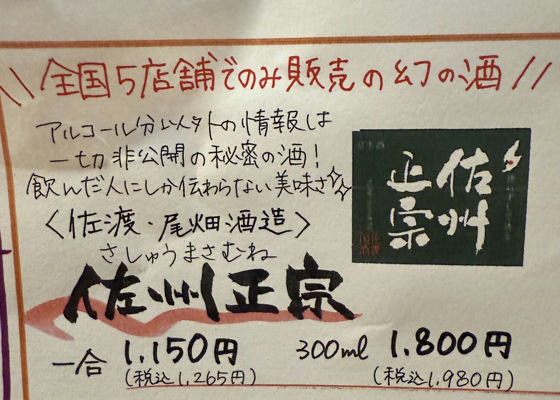 \\全国5店舗でのみ販売の幻の酒//
アルコール分以外の情報は
一切非公開の秘密の酒!
飲んだ人にしか伝わらない美味さ✧✧
〈佐渡・尾畑酒造〉
さしゅうまさむね
佐州正宗
一合 1,150円
(税込1,265円)
300ml 1,800円
(税込1,980円)
佐州
正宗